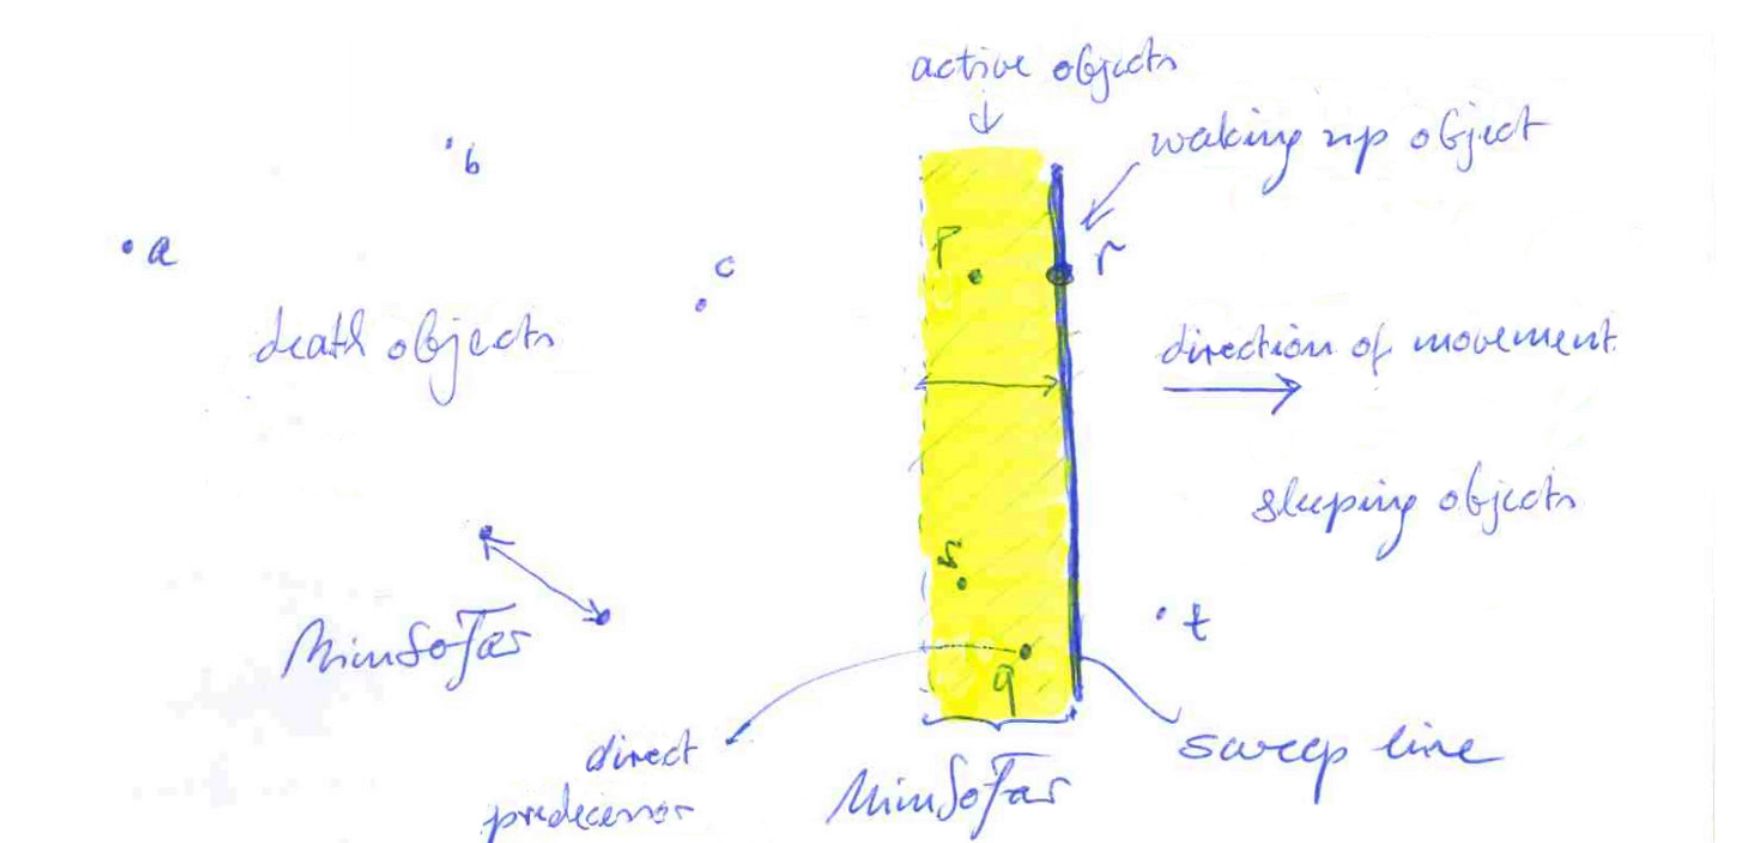 active objects
waking up object
b
a
c
p
r
death objects
direction of movement
sleeping objects
t
MinSoFar
q
direct
predecessor
sweep line
MinSoFar